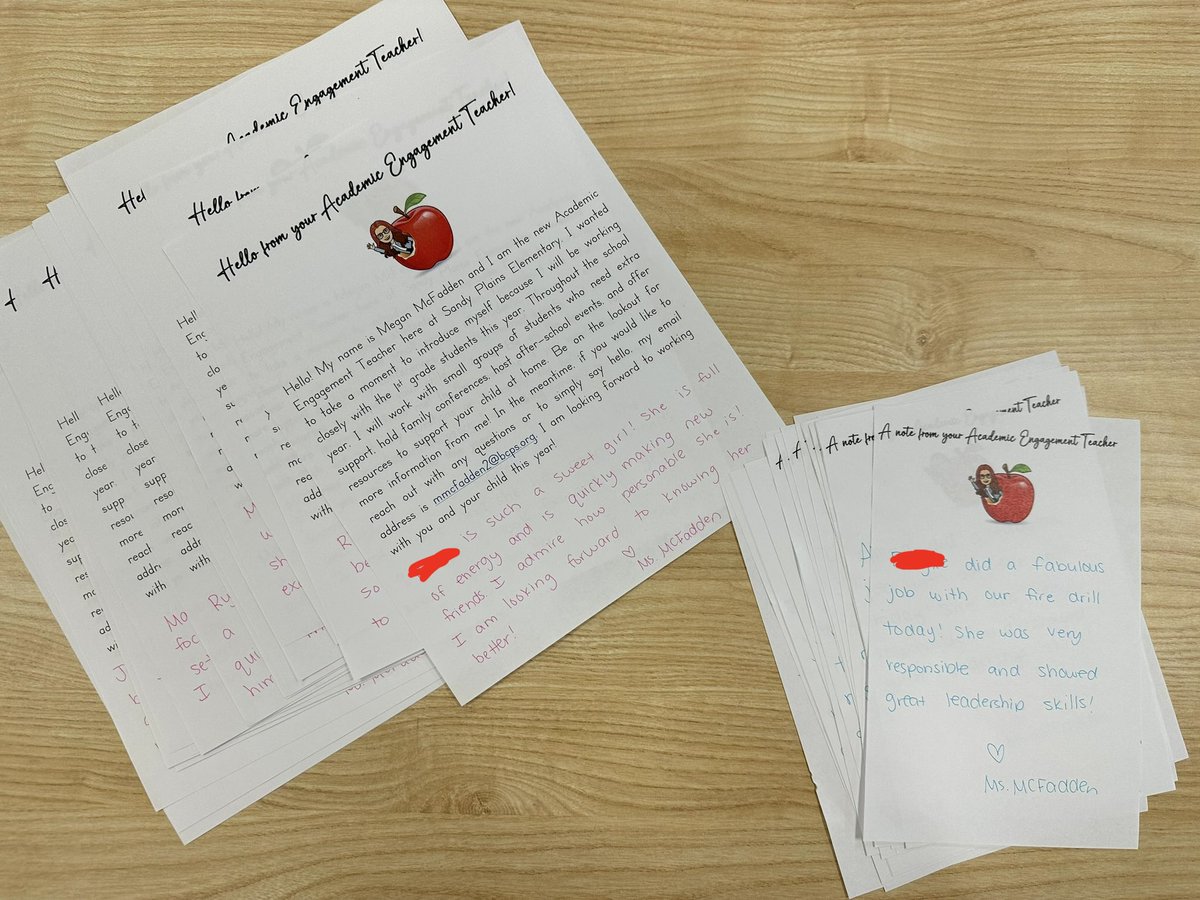 Academic Engagement Teacher!
Hel
Hello from
Hello from your Academic Engagement Teacher!
Hello! My name is Megan McFadden and I am the new Academic
Engagement Teacher here at Sandy Plains Elementary. I wanted
to take a moment to introduce myself because I will be working
closely with the 1st grade students this year. Throughout the school
year, I will work with small groups of students who need extra
support, hold family conferences, host after-school events, and offer
resources to support your child at home. Be on the lookout for
more information from me! In the meantime, if you would like to
reach out with any questions or to simply say hello, my email
address is mmcfadden2@bcps.org. I am looking forward to working
with you and your child this year!
is such a sweet girl! She is full
of energy and is quickly making new
friends. I admire how personable she is!
I am looking forward to knowing her
better!
♡
Ms. McFadden
Engagement Teacher
A note from
A note from your Academic Engagement Teacher
did a fabulous
job with our fire drill
today! She was very
responsible and showed
great leadership skills!
♡
Ms. McFadden